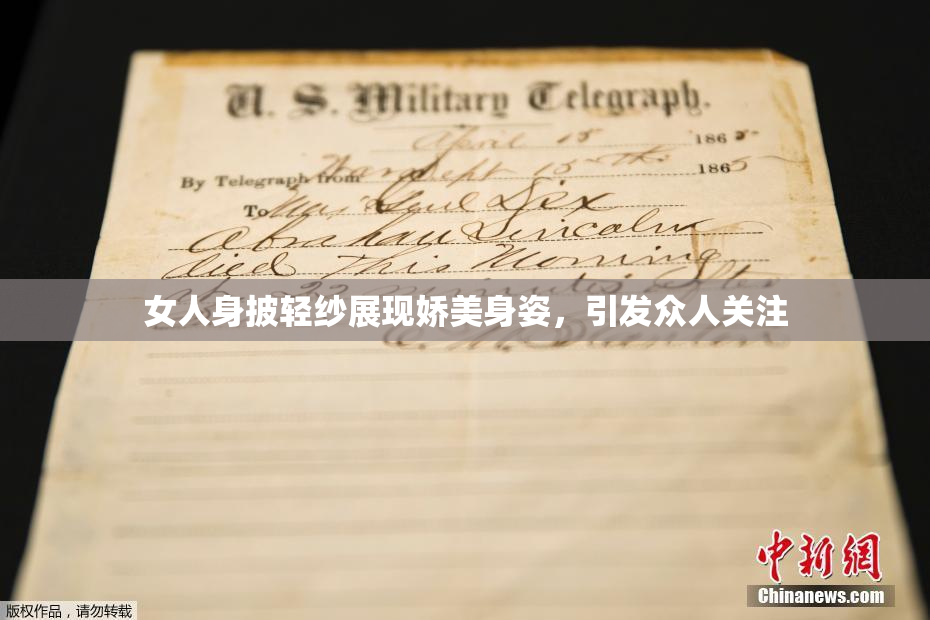 U. S. Military Telegraph.
April 15 1865
By Telegraph from War Dept 15th 1865
To Maj Genl Dix
Abraham Lincoln
died This Morning
22 minutes after
女人身披轻纱展现娇美身姿，引发众人关注
E. M. Stanton
中新网
Chinanews.com
版权作品，请勿转载